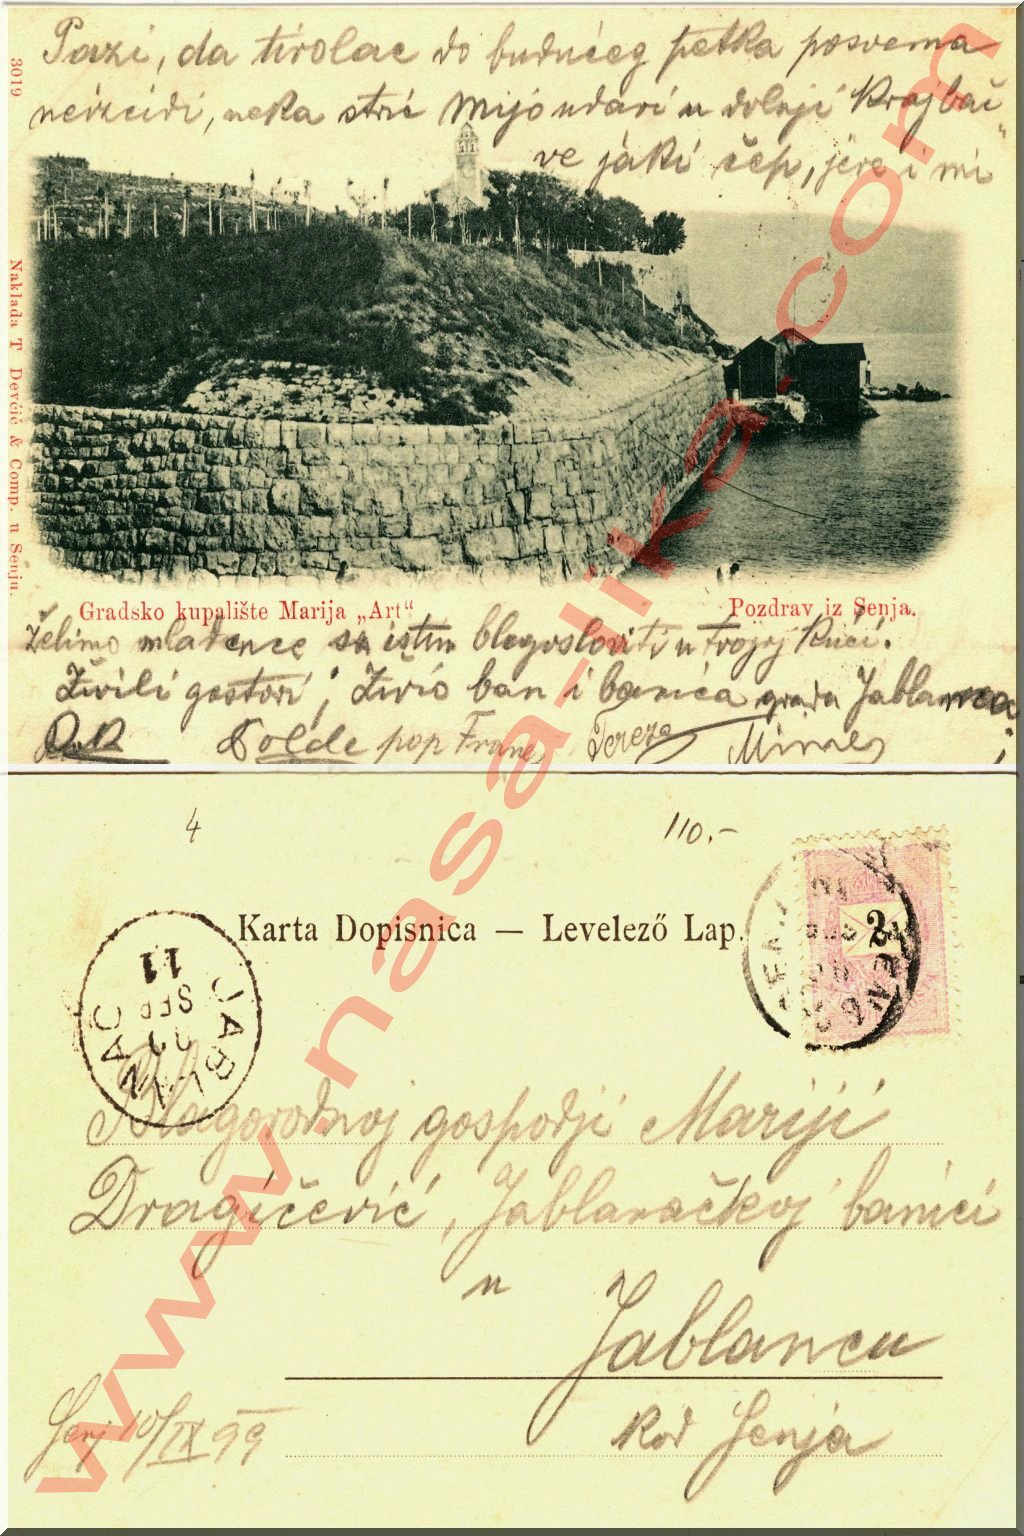 Pazi, da tirolac do budućeg petka posvema
neizcidi, neka stric Mijo udari u dolnji Krajbač
ve jaki čep, jere i mi
3019
Naklada T. Devčić & Comp. u Senju.
Gradsko kupalište Marija „Art“
Pozdrav iz Senja.
Želimo mladence sa istim blagosloviti u tvojoj kući.
Živili gostovi; Živio ban i banica grada Jablanca
Polde pop Frane, Tereza
www.nasa-lika.com
4
110.-
Karta Dopisnica — Levelező Lap.
JABLANAC
SEP
11
2
Blagorodnoj gospodji Mariji
Dragičević, Jablanačkoj banici
u
Jablancu
kod Senja
Senj 10/IX 99